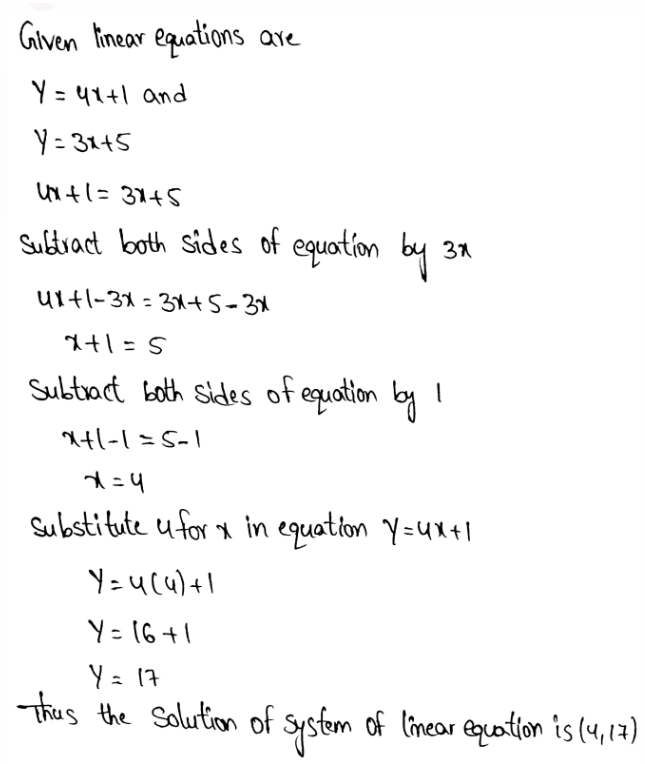 Given linear equations are
y = 4x+1 and
y = 3x+5
4x+1 = 3x+5
Subtract both sides of equation by 3x
4x+1-3x = 3x+5-3x
x+1 = 5
Subtract both sides of equation by 1
x+1-1 = 5-1
x = 4
Substitute 4 for x in equation y=4x+1
y = 4(4)+1
y = 16+1
y = 17
Thus the solution of system of linear equation is (4,17)